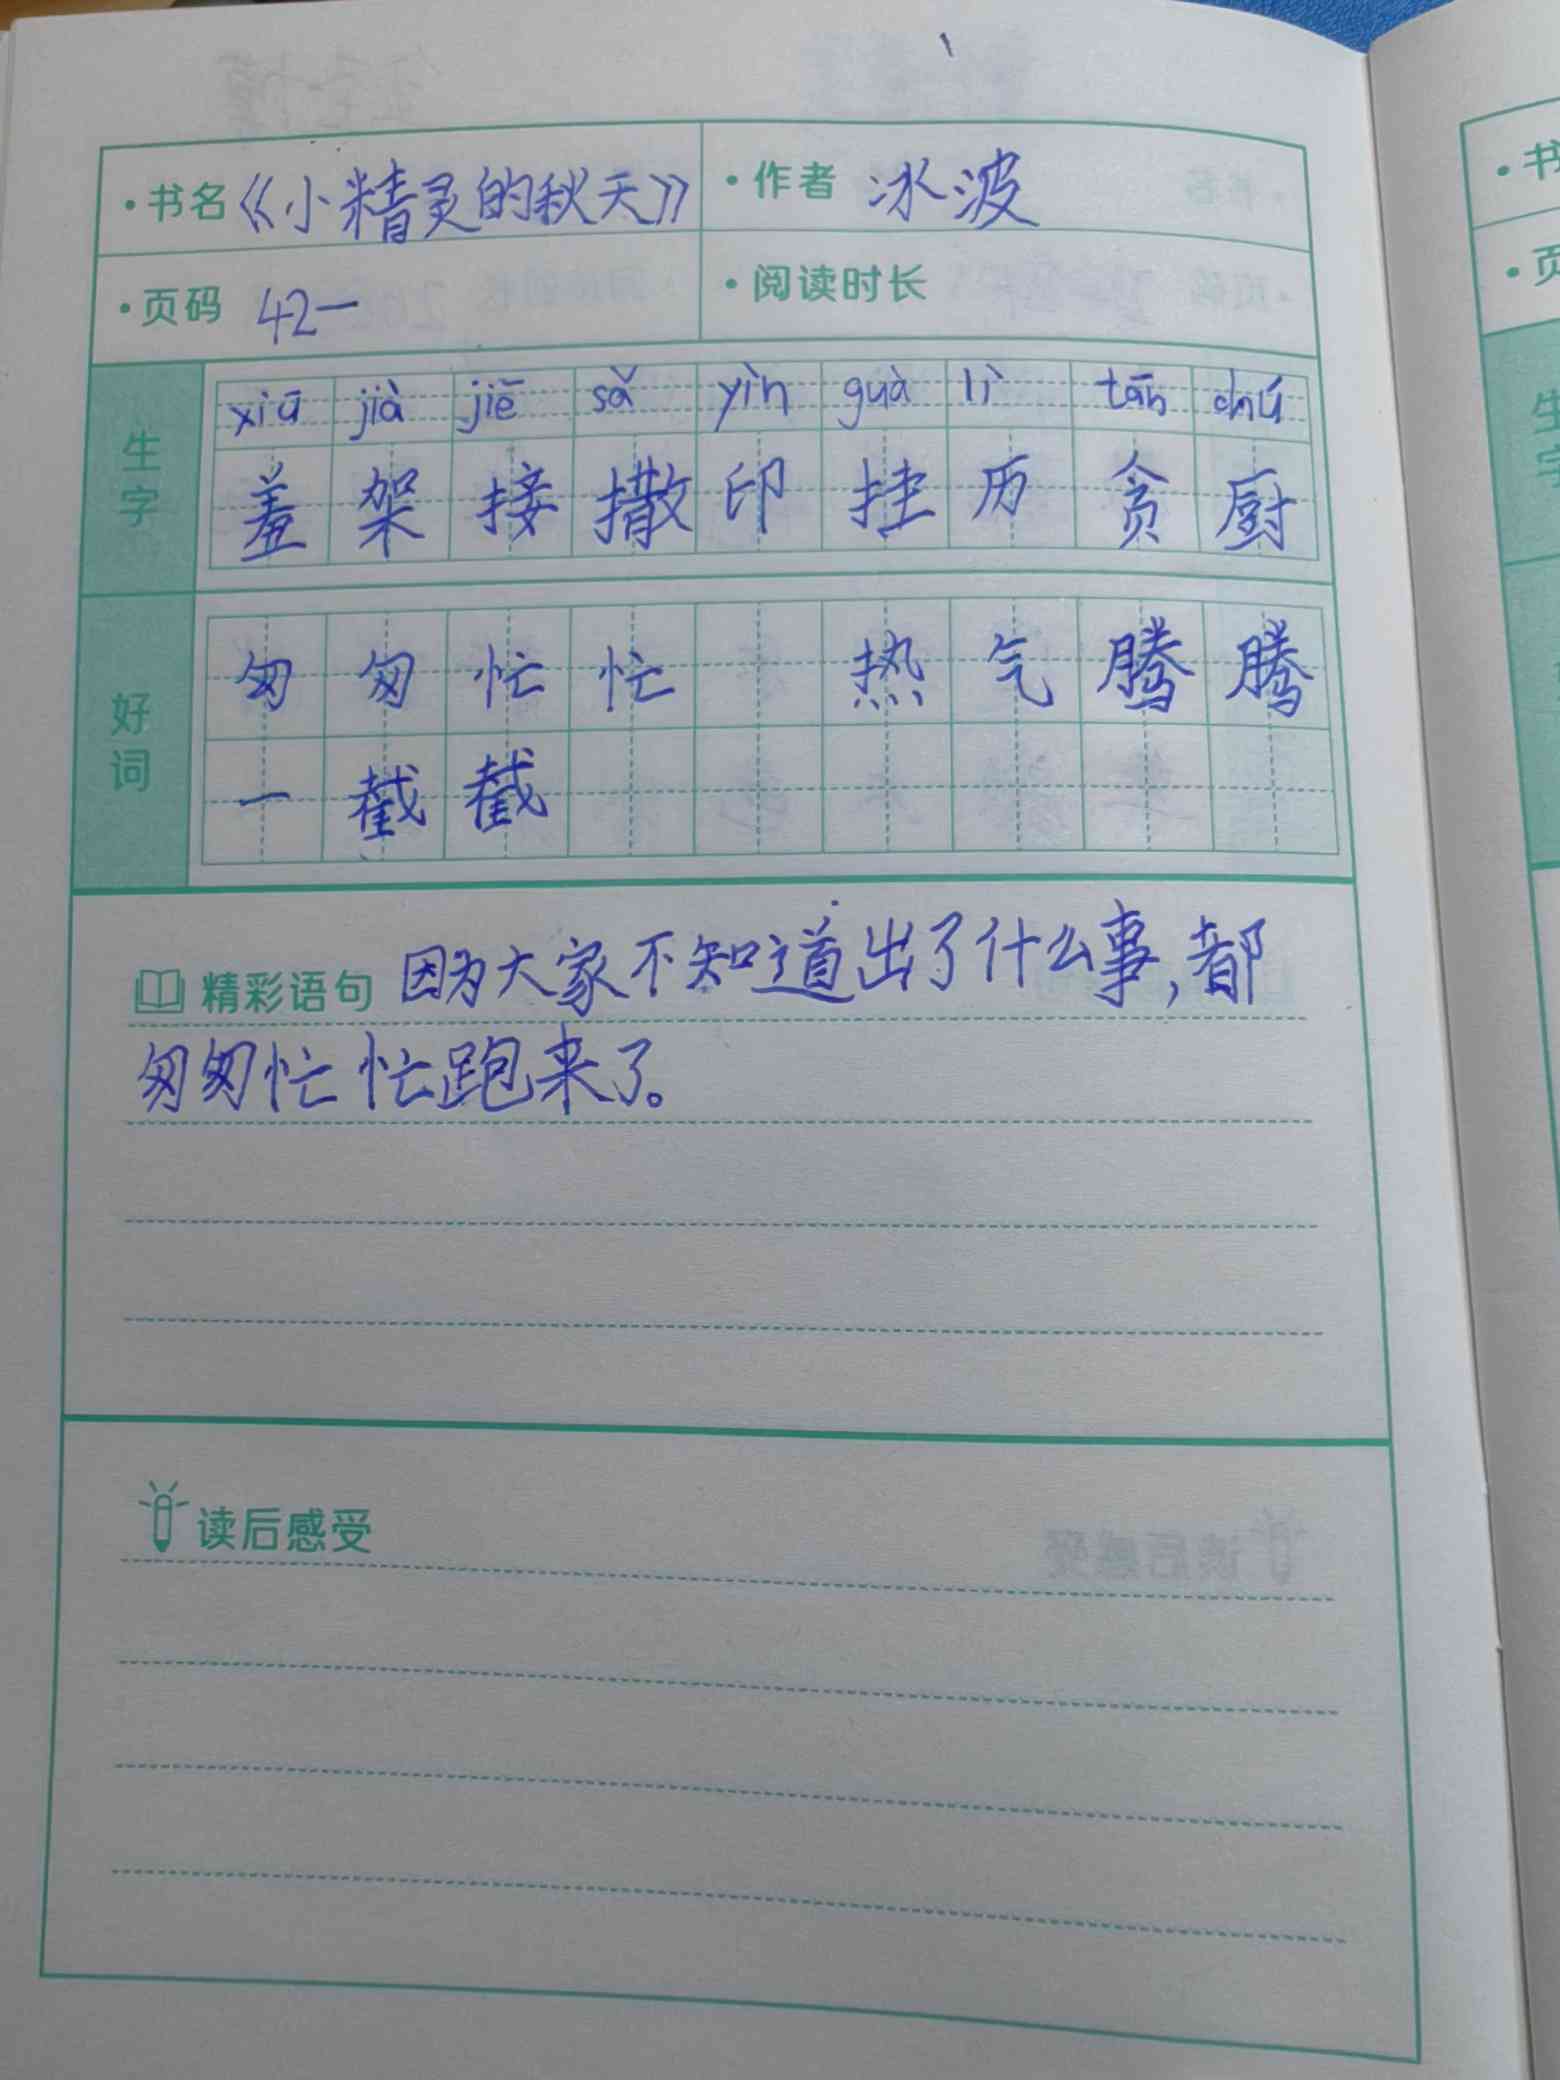 ·书名《小精灵的秋天》 ·作者 冰波
·页码 42一 ·阅读时长
生字
xiū jià jiē sǎ yìn guà lì tān chú
羞 架 接 撒 印 挂 历 贪 厨
好词
匆 匆 忙 忙 热 气 腾 腾
一 截 截
精彩语句 因为大家不知道出了什么事,都
匆匆忙忙跑来了。
读后感受